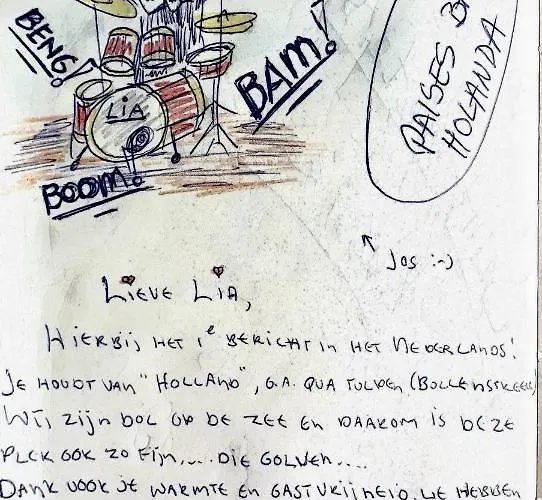 BENG!
LIA
BAM!
BOOM!
PAISES
HOLANDA
Jos :-)
LIEVE LIA,
HIERBIJ HET 1e BERICHT IN HET NEDERLANDS!
JE HOUDT VAN "HOLLAND", O.A. QUA TULPEN (BOLLENSTREEK)
WIJ ZIJN DOL OP DE ZEE EN DAAROM IS DEZE
PLEK OOK ZO FIJN..... DIE GOLVEN....
DANK VOOR JE WARMTE EN GASTVRIJHEID. WE HEBBEN